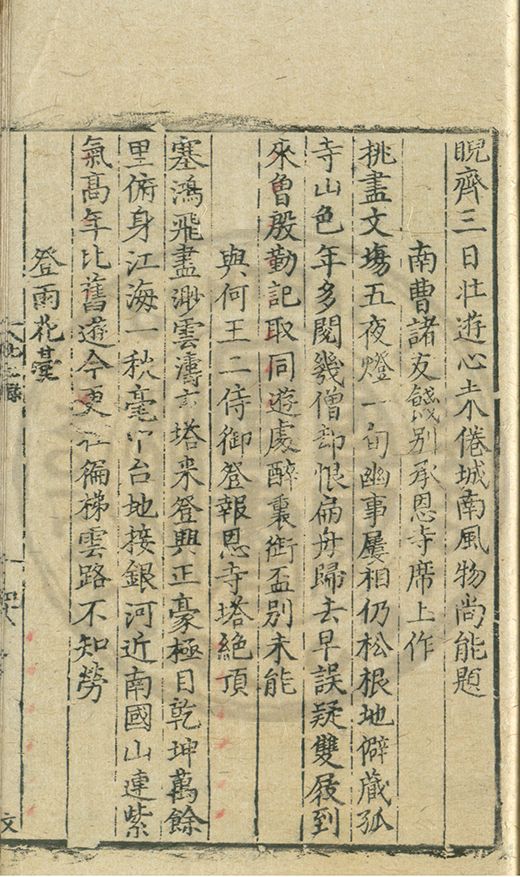 睨齊三日壯遊心未倦城南風物尚能題
南曹諸友餞別承恩寺席上作
挑盡文塲五夜燈一旬幽事屢相仍松根地僻蔵孤
寺山色年多閱幾僧却恨扁舟歸去早誤疑雙屐到
來曾殷勤記取同遊處醉裏銜盃別未能
與何王二侍御登報恩寺塔絶頂
塞鴻飛盡渺雲濤塔来登興正豪極目乾坤萬餘
里俯身江海一秋毫中台地接銀河近南國山連紫
氣髙年比舊遊今更徧梯雲路不知勞
登雨花臺
文